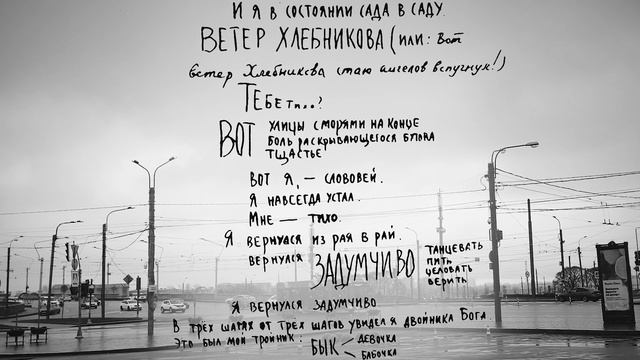 И я в состоянии сада в саду.
ВЕТЕР ХЛЕБНИКОВА (или: Вот
ветер Хлебникова стаю ангелов вспугнул!)
Тебе ти..?
ВОТ улицы с морями на конце
боль раскрывающегося блока
тщастье
Вот я, — слововей.
Я навсегда устал.
Мне — тихо.
Я вернулся из рая в рай.
вернулся ЗАДУМЧИВО танцевать
пить
целовать
верить
Я вернулся задумчиво
В трех шагах от трех шагов увидел я двойника Бога.
Это был мой тройник: БЫК девочка
бабочка